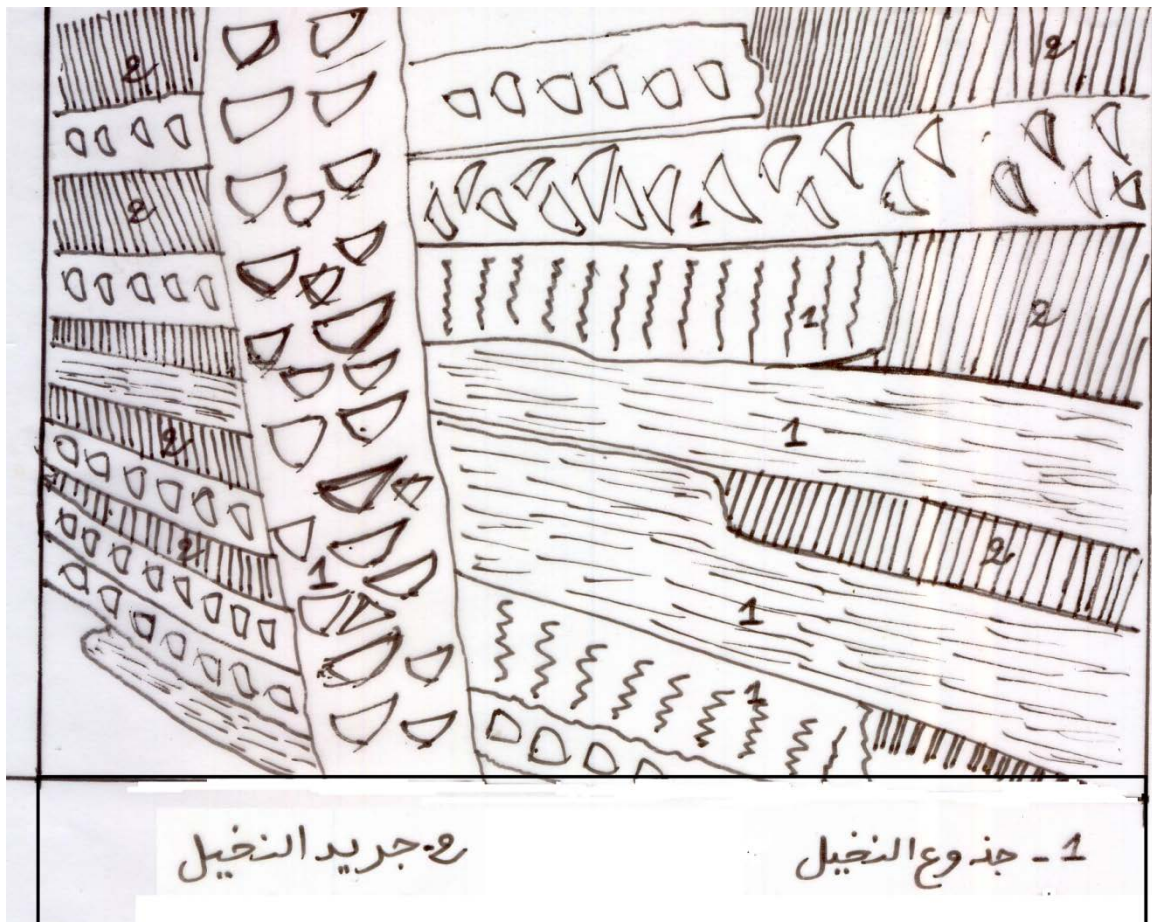 2
2
2
2
2
1
1
1
2
1
2
1
1
1 - جذوع النخيل
2- جريد النخيل